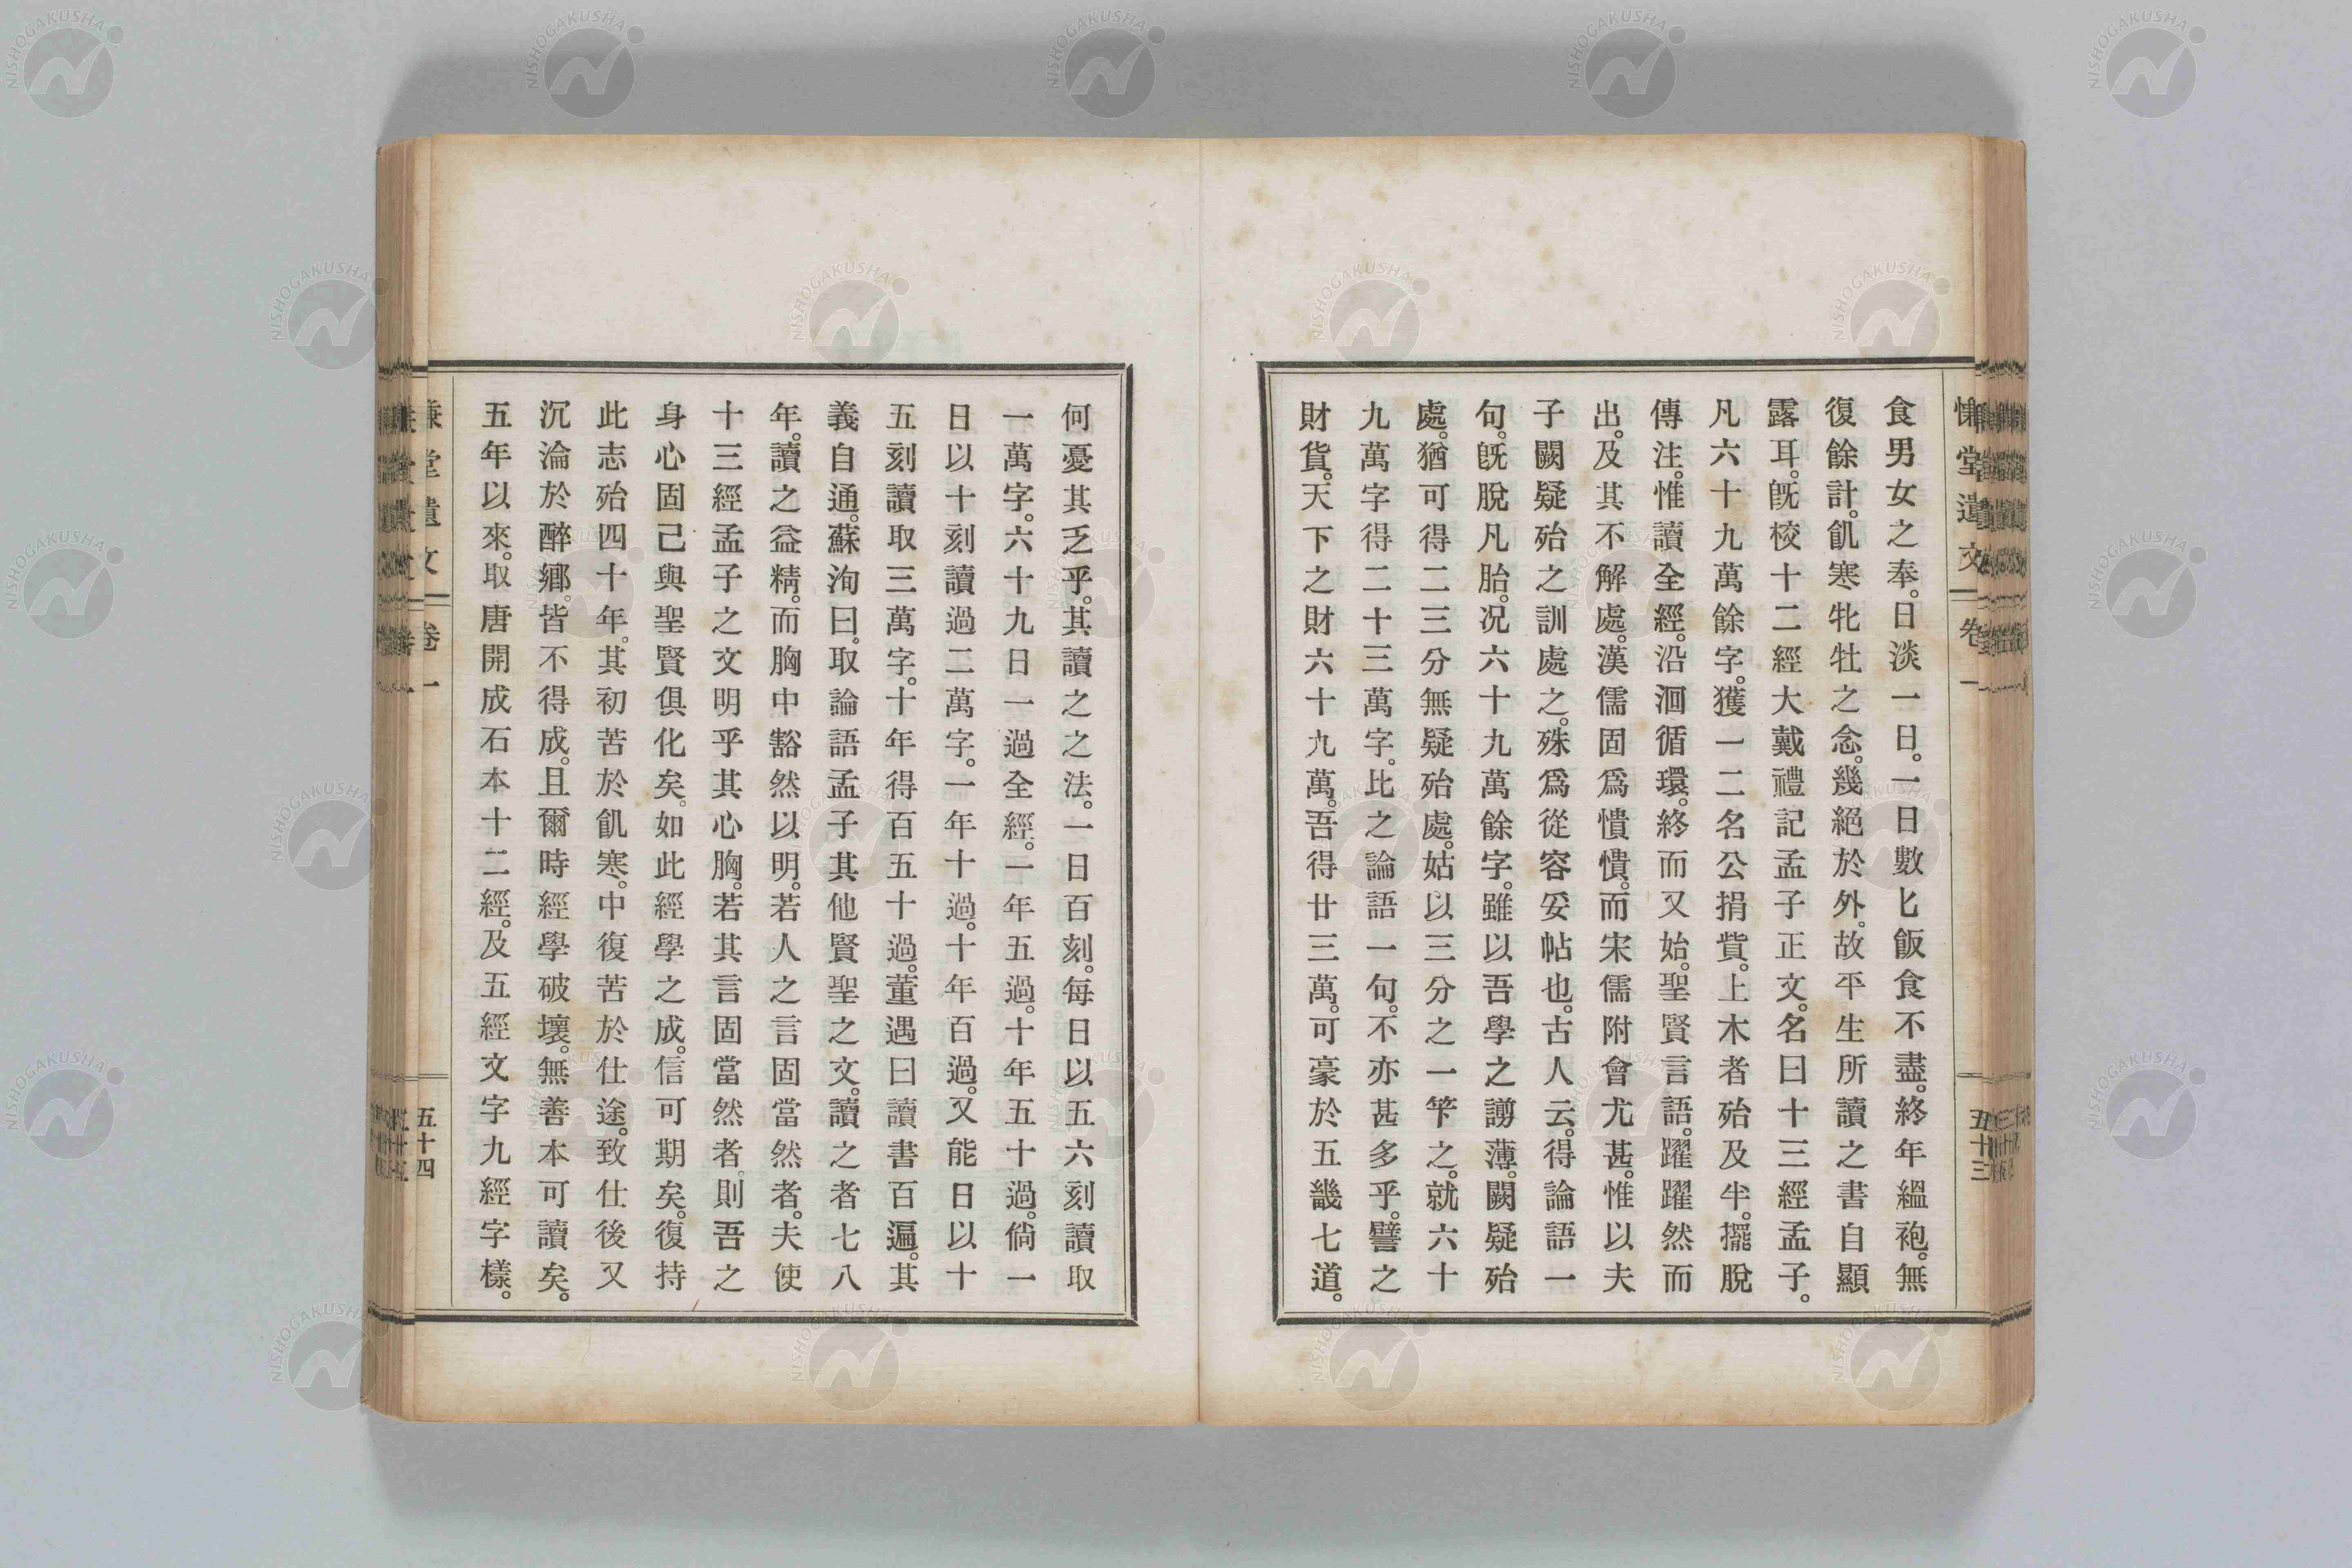 慊堂遺文 卷一 五十三
食男女之奉。日淡一日。一日數匕飯食不盡。終年縕袍。無
復餘計。飢寒牝牡之念。幾絕於外。故平生所讀之書自顯
露耳。旣校十二經大戴禮記孟子正文。名曰十三經孟子。
凡六十九萬餘字。獲一二名公捐貲。上木者殆及半。擺脫
傳注。惟讀全經。沿洄循環。終而又始。聖賢言語。躍躍然而
出。及其不解處。漢儒固爲憒憒。而宋儒附會尤甚。惟以夫
子闕疑殆之訓處之。殊爲從容妥帖也。古人云。得論語一
句。旣脫凡胎。况六十九萬餘字。雖以吾學之謭薄。闕疑殆
處。猶可得二三分無疑殆處。姑以三分之一笇之。就六十
九萬字得二十三萬字。比之論語一句。不亦甚多乎。譬之
財貨。天下之財六十九萬。吾得廿三萬。可豪於五畿七道。
何憂其乏乎。其讀之之法。一日百刻。每日以五六刻讀取
一萬字。六十九日一過全經。一年五過。十年五十過。倘一
日以十刻讀過二萬字。一年十過。十年百過。又能日以十
五刻讀取三萬字。十年得百五十過。董遇曰讀書百遍。其
義自通。蘇洵曰。取論語孟子其他賢聖之文。讀之者七八
年。讀之益精。而胸中豁然以明。若人之言固當然者。夫使
十三經孟子之文明乎其心胸。若其言固當然者。則吾之
身心固已與聖賢俱化矣。如此經學之成。信可期矣。復持
此志殆四十年。其初苦於飢寒。中復苦於仕途。致仕後又
沉淪於醉鄕。皆不得成。且爾時經學破壞。無善本可讀矣。
五年以來。取唐開成石本十二經。及五經文字九經字樣。
慊堂遺文 卷一 五十四